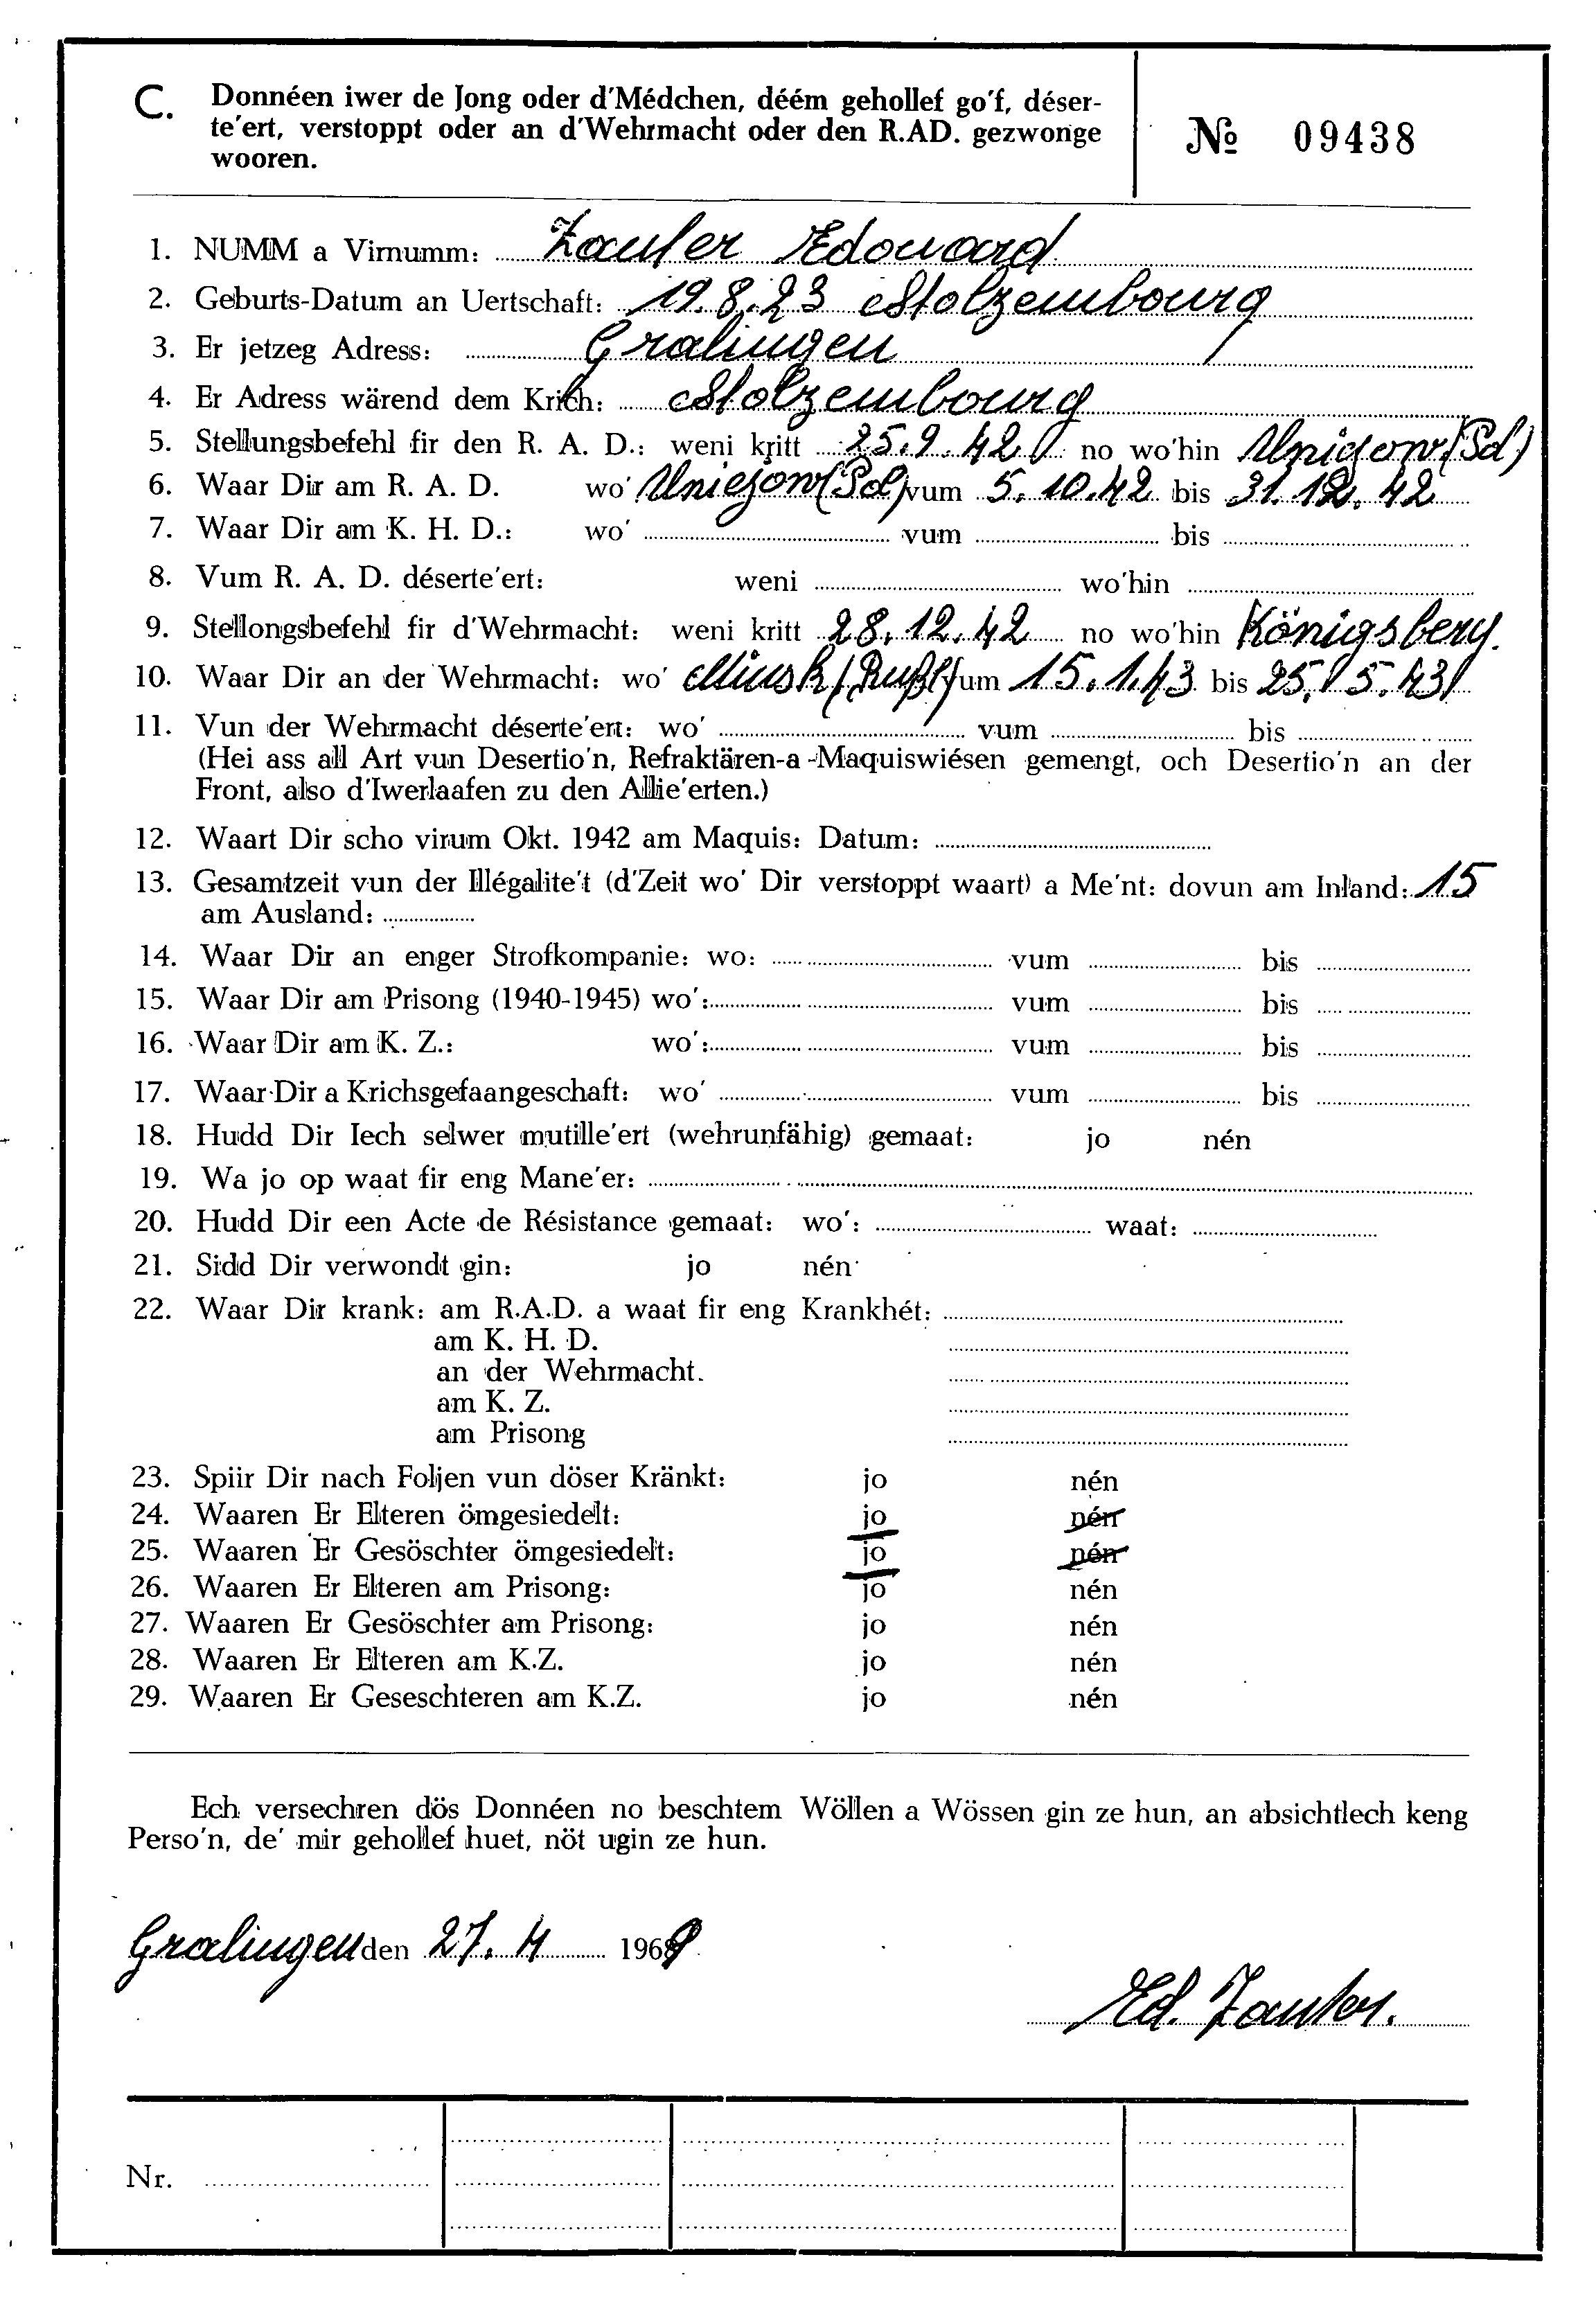 C. Donnéen iwer de Jong oder d'Médchen, déém gehollef go'f, déser-
te'ert, verstoppt oder an d'Wehrmacht oder den R.AD. gezwonge
wooren.
№ 09438
1. NUMM a Virnumm: Zauter Edouard
2. Geburts-Datum an Uertschaft: 19.8.23 Stolzembourg
3. Er jetzeg Adress: Gralingen
4. Er Adress wärend dem Krich: Stolzembourg
5. Stellungsbefehl fir den R. A. D.: weni kritt 25.9.42 no wo'hin Uniejow (Pol)
6. Waar Dir am R. A. D. wo' Uniejow (Pol) vum 5.10.42 bis 31.12.42
7. Waar Dir am K. H. D.: wo' vum bis
8. Vum R. A. D. déserte'ert: weni wo'hin
9. Stellongsbefehl fir d'Wehrmacht: weni kritt 28.12.42 no wo'hin Königsberg.
10. Waar Dir an der Wehrmacht: wo' Minsk (Rußl) vum 15.1.43 bis 25.5.43
11. Vun der Wehrmacht déserte'ert: wo' vum bis
(Hei ass all Art vun Desertio'n, Refraktären-a-Maquiswiésen gemengt, och Desertio'n an der
Front, also d'Iwerlaafen zu den Allie'erten.)
12. Waart Dir scho virum Okt. 1942 am Maquis: Datum:
13. Gesamtzeit vun der Illégalite't (d'Zeit wo' Dir verstoppt waart) a Me'nt: dovun am Inland: 15
am Ausland:
14. Waar Dir an enger Strofkompanie: wo: vum bis
15. Waar Dir am Prisong (1940-1945) wo': vum bis
16. Waar Dir am K. Z.: wo': vum bis
17. Waar Dir a Krichsgefaangeschaft: wo' vum bis
18. Hudd Dir Iech selwer mutille'ert (wehrunfähig) gemaat: jo nén
19. Wa jo op waat fir eng Mane'er:
20. Hudd Dir een Acte de Résistance gemaat: wo': waat:
21. Sidd Dir verwondt gin: jo nén
22. Waar Dir krank: am R.A.D. a waat fir eng Krankhét:
am K. H. D.
an der Wehrmacht.
am K. Z.
am Prisong
23. Spiir Dir nach Foljen vun döser Kränkt: jo nén
24. Waaren Er Elteren ömgesiedelt: jo nén
25. Waaren Er Gesöschter ömgesiedelt: jo nén
26. Waaren Er Elteren am Prisong: jo nén
27. Waaren Er Gesöschter am Prisong: jo nén
28. Waaren Er Elteren am K.Z. jo nén
29. Waaren Er Geseschteren am K.Z. jo nén
Ech versechren dös Donnéen no beschtem Wöllen a Wössen gin ze hun, an absichtlech keng
Perso'n, de' mir gehollef huet, nöt ugin ze hun.
Gralingen den 27. 4 1969
Ed. Zauter.
Nr.